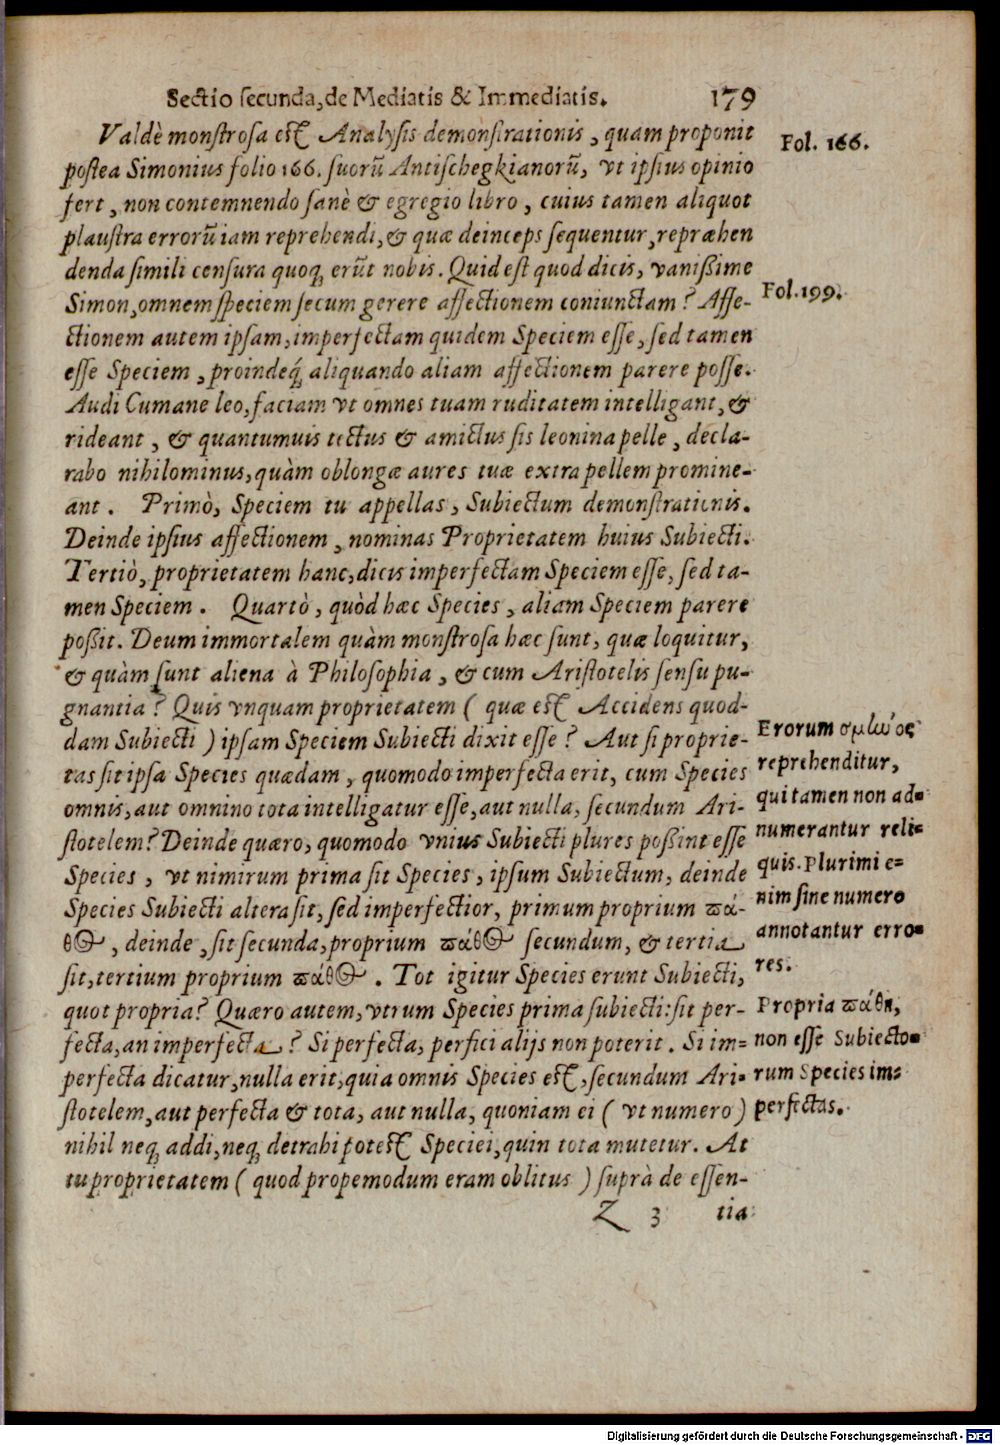 Sectio secunda, de Mediatis & Immediatis. 179
Valdè monstrosa est Analysis demonstrationis, quam proponit
postea Simonius folio 166. suorũ Antischegkianorũ, vt ipsius opinio
fert, non contemnendo sanè & egregio libro, cuius tamen aliquot
plaustra errorũ iam reprehendi, & quæ deinceps sequentur, repræhen
denda simili censura quoq; erũt nobis. Quid est quod dicis, vanißime
Simon, omnem speciem secum gerere affectionem coniunctam? Affe-
ctionem autem ipsam, imperfectam quidem Speciem esse, sed tamen
esse Speciem, proindeq́; aliquando aliam affectionem parere posse.
Audi Cumane leo, faciam vt omnes tuam ruditatem intelligant, &
rideant, & quantumuis tectus & amictus sis leonina pelle, decla-
rabo nihilominus, quàm oblongæ aures tuæ extra pellem promine-
ant. Primò, Speciem tu appellas, Subiectum demonstrationis.
Deinde ipsius affectionem, nominas Proprietatem huius Subiecti.
Tertiò, proprietatem hanc, dicis imperfectam Speciem esse, sed ta-
men Speciem. Quartò, quòd hæc Species, aliam Speciem parere
poßit. Deum immortalem quàm monstrosa hæc sunt, quæ loquitur,
& quàm sunt aliena à Philosophia, & cum Aristotelis sensu pu-
gnantia? Quis vnquam proprietatem ( quæ est Accidens quod-
dam Subiecti ) ipsam Speciem Subiecti dixit esse? Aut si proprie-
tas sit ipsa Species quædam, quomodo imperfecta erit, cum Species
omnis, aut omnino tota intelligatur esse, aut nulla, secundum Ari-
stotelem? Deinde quæro, quomodo vnius Subiecti plures poßint esse
Species, vt nimirum prima sit Species, ipsum Subiectum, deinde
Species Subiecti altera sit, sed imperfectior, primum proprium πά-
θος, deinde, sit secunda, proprium πάθος secundum, & tertia
sit, tertium proprium πάθος. Tot igitur Species erunt Subiecti,
quot propria? Quæro autem, vtrum Species prima subiecti: sit per-
fecta, an imperfecta? Si perfecta, perfici alijs non poterit. Si im-
perfecta dicatur, nulla erit, quia omnis Species est, secundum Ari-
stotelem, aut perfecta & tota, aut nulla, quoniam ei ( vt numero )
nihil neq; addi, neq; detrahi potest Speciei, quin tota mutetur. At
tu proprietatem ( quod propemodum eram oblitus ) suprà de essen-
Z 3 tia
Fol. 166.
Fol. 199.
Erorum
reprehenditur,
qui tamen non ad-
numerantur reli-
quis. Plurimi e-
nim sine numero
annotantur erro-
res.
Propria πάθη,
non esse Subiecto-
rum Species im-
perfectas.
Digitalisierung gefördert durch die Deutsche Forschungsgemeinschaft - DFG